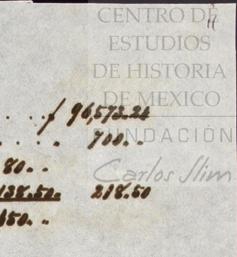 CENTRO DE
ESTUDIOS
DE HISTORIA
DE MEXICO
FUNDACIÓN
Carlos Slim
. . . . f 96,573.24
. . . . 700..
80..
138.50. 218.50
650..